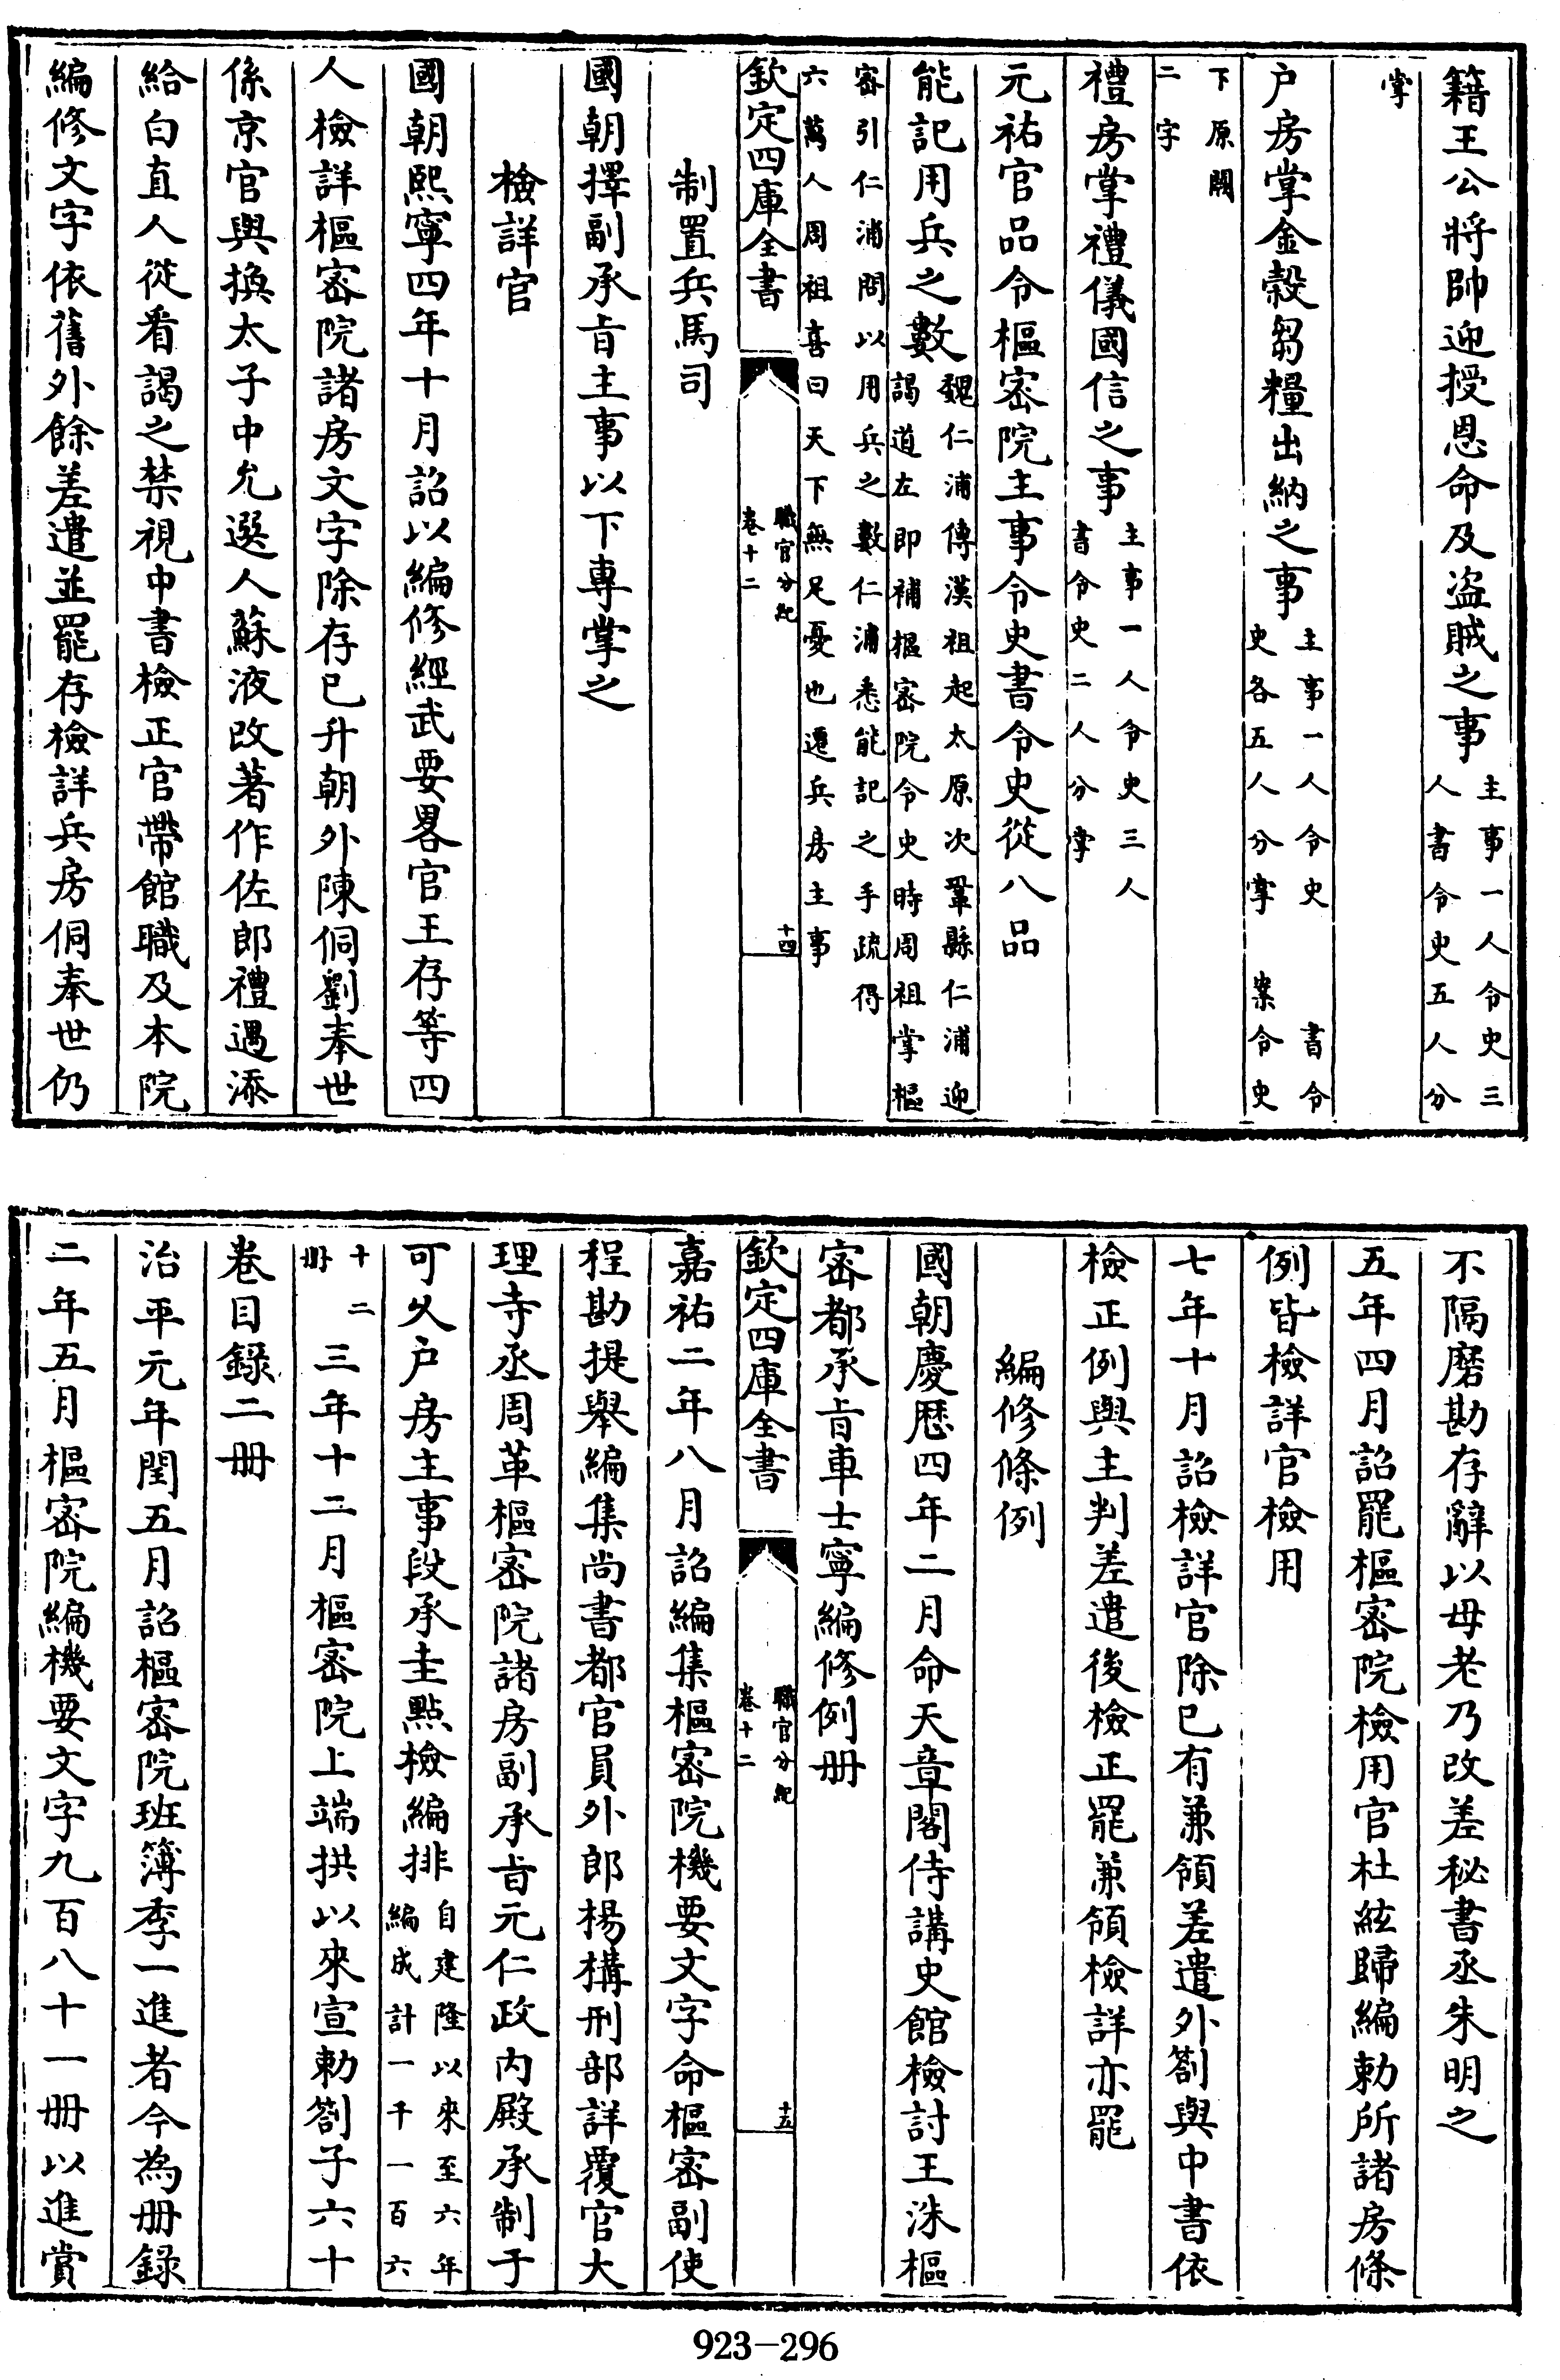 籍王公將帥迎授恩命及盜賊之事主事一人令史三人書令史五人分
掌
户房掌金穀芻糧出納之事主事一人令史　書令史各五人分掌　案令史
下原闕二字
禮房掌禮儀國信之事主事一人令史三人書令史二人分掌
元祐官品令樞密院主事令史書令史從八品
能記用兵之數魏仁浦傳漢祖起太原次鞏縣仁浦迎謁道左即補樞密院令史時周祖掌樞
密引仁浦問以用兵之數仁浦悉能記之手疏得六萬人周祖喜曰天下無足憂也遷兵房主事
欽定四庫全書　職官分紀　卷十二　十四
制置兵馬司
國朝擇副承㫖主事以下專掌之
檢詳官
國朝熙寧四年十月詔以編修經武要畧官王存等四
人檢詳樞密院諸房文字除存已升朝外陳侗劉奉世
係京官與換太子中允選人蘇液改著作佐郎禮遇添
給白直人從看謁之禁視中書檢正官帶館職及本院
編修文字依舊外餘差遣並罷存檢詳兵房侗奉世仍
不隔磨勘存辭以母老乃改差秘書丞朱明之
五年四月詔罷樞密院檢用官杜紘歸編勅所諸房條
例皆檢詳官檢用
七年十月詔檢詳官除已有兼領差遣外劄與中書依
檢正例與主判差遣後檢正罷兼領檢詳亦罷
編修條例
國朝慶厯四年二月命天章閣侍講史館檢討王洙樞
密都承㫖車士寧編修例册
欽定四庫全書　職官分紀　卷十二　十五
嘉祐二年八月詔編集樞密院機要文字命樞密副使
程勘提舉編集尚書都官員外郎楊構刑部詳覆官大
理寺丞周革樞密院諸房副承㫖元仁政内殿承制于
可久户房主事段承圭點檢編排自建隆以來至六年編成計一千一百六
十二册三年十二月樞密院上端拱以來宣勅劄子六十
卷目錄二册
治平元年閏五月詔樞密院班簿季一進者令為册錄
二年五月樞密院編機要文字九百八十一册以進賞
923－296